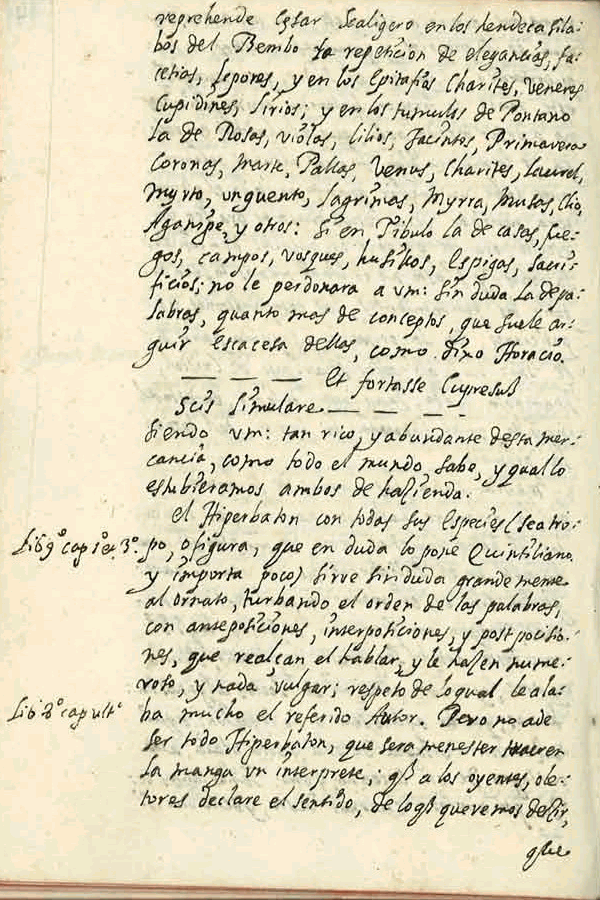 reprehende Cesar Scaligero en los hendecasila-
bos del Bembo la repeticion de elegancias, fa-
cetias, Lepores, y en los Epitafios Charites, Veneres
Cupidines, Sirios; y en los tumulos de Pontano
la de Rosas, violas, lilios, Jacintos, Primavera
Coronas, Marte, Pallas, Venus, Charites, Laurel,
Myrto, unguento, lagrimas, Myrra, Musas, Clio,
Aganipe, y otros: si en Tibulo la de casas, fue-
gos, campos, vosques, Espigas, sacri-
ficios: no le perdonara a vm: sin duda la de pa-
labras, quanto mas de conceptos, que suele ar-
guir escacesa dellos, como dixo Horacio.
— — — — Et fortasse Cupressū
Scis simulare — — — —
siendo vm: tan rico, y abundante desta mer-
cancia, como todo el mundo sabe, y qual lo
estubieramos ambos de hazienda.
el Hiperbaton con todas sus Especies (sea tro-
Lib 9º cap 1º et 3º. po, o figura, que en duda lo pone Quintiliano
y importa poco) sirve sin duda grandemente
al ornato, turbando el orden de las palabras,
con anteposiciones, interposiciones, y postposicio-
nes, que realçan el hablar, y le hazen nume-
roso, y nada vulgar; respeto de lo qual le ala-
Lib 8º cap ultº ba mucho el referido Autor. Pero no a de
ser todo Hiperbaton, que sera menester traer en
la manga vn interprete, q̃ a los oyentes, o le-
tores declare el sentido, de lo q̃ queremos dezir,
que